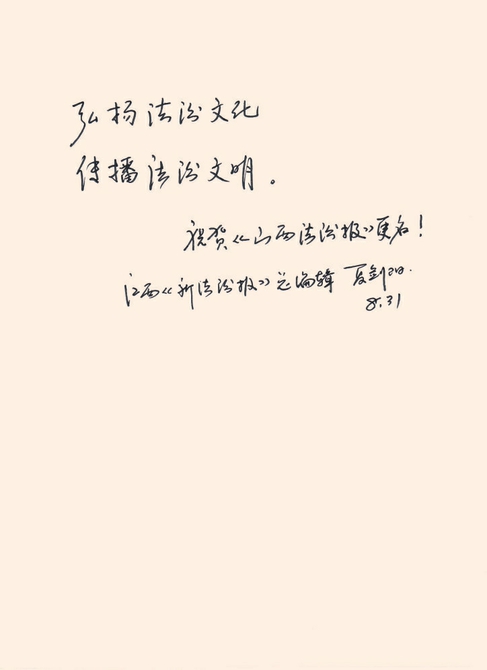 弘扬法治文化
传播法治文明。
祝贺《山西法治报》更名！
江西《新法治报》总编辑 夏剑阳.
8.31